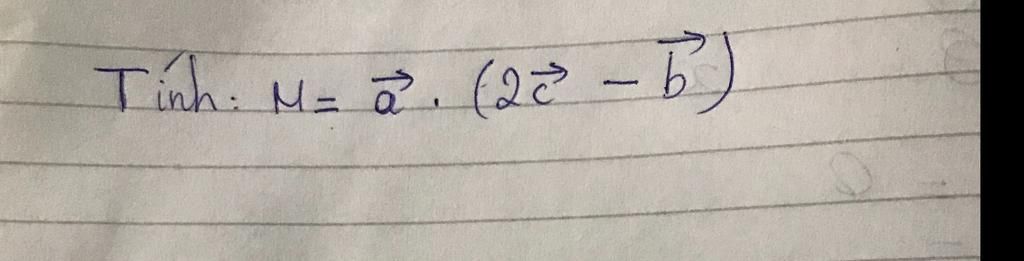 Tính: M = a⃗ . (2c⃗ − b⃗)